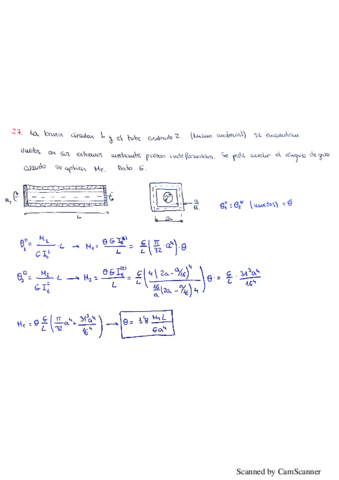 27. La barra circular 1 y el tubo cuadrado 2 (mismo material) se encuentran
unidos en sus extremos mediante piezas indeformables. Se pide calcular el ángulo de giro
cuando se aplica M_T. Dato G.
M_T
L
2a
a/8
θ_1^0 = θ_2^0 (unidos) = θ
θ_1^0 = M_1/(G I_t^1) · L → M_1 = θ G I_t^(1)/L = G/L (π/32 a^4) · θ
θ_2^0 = M_2/(G I_t^2) · L → M_2 = θ G I_t^(2)/L = G/L
M_T = θ G/L (π/32 a^4 + 31^3 a^4/16^4) → θ = 1'8 M_T L/(G a^4)
Scanned by CamScanner